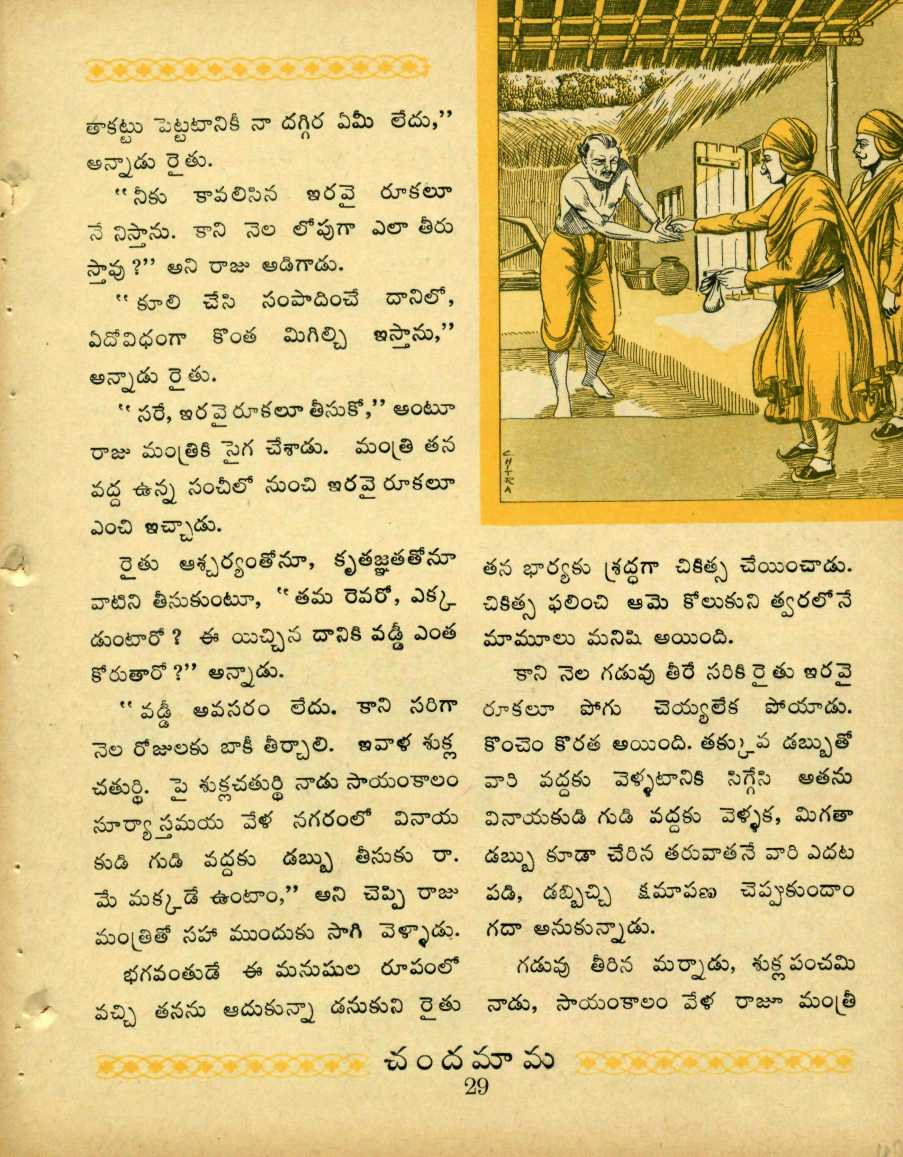 తాకట్టు పెట్టటానికి నా దగ్గిర ఏమీ లేదు,”
అన్నాడు రైతు.
“నీకు కావలిసిన ఇరవై రూకలూ
నే నిస్తాను. కాని నెల లోపుగా ఎలా తీరు
స్తావు?” అని రాజు అడిగాడు.
“కూలి చేసి సంపాదించే దానిలో,
ఏదోవిధంగా కొంత మిగిల్చి ఇస్తాను,”
అన్నాడు రైతు.
“సరే, ఇరవైరూకలూ తీసుకో,” అంటూ
రాజు మంత్రికి సైగ చేశాడు. మంత్రి తన
వద్ద ఉన్న సంచీలో నుంచి ఇరవైరూకలూ
ఎంచి ఇచ్చాడు.
రైతు ఆశ్చర్యంతోనూ, కృతజ్ఞతతోనూ
వాటిని తీసుకుంటూ, “తమ రెవరో, ఎక్క
డుంటారో? ఈ యిచ్చిన దానికి వడ్డీ ఎంత
కోరుతారో?” అన్నాడు.
“వడ్డీ అవసరం లేదు. కాని సరిగా
నెల రోజులకు బాకీ తీర్చాలి. ఇవాళ శుక్ల
చతుర్థి. పై శుక్లచతుర్థి నాడు సాయంకాలం
సూర్యాస్తమయ వేళ నగరంలో వినాయ
కుడి గుడి వద్దకు డబ్బు తీసుకు రా.
మే మక్కడే ఉంటాం,” అని చెప్పి రాజు
మంత్రితో సహా ముందుకు సాగి వెళ్ళాడు.
భగవంతుడే ఈ మనుషుల రూపంలో
వచ్చి తనను ఆదుకున్నా డనుకుని రైతు
CHITRA
తన భార్యకు శ్రద్ధగా చికిత్స చేయించాడు.
చికిత్స ఫలించి ఆమె కోలుకుని త్వరలోనే
మామూలు మనిషి అయింది.
కాని నెల గడువు తీరే సరికి రైతు ఇరవై
రూకలూ పోగు చెయ్యలేక పోయాడు.
కొంచెం కొరత అయింది. తక్కువ డబ్బుతో
వారి వద్దకు వెళ్ళటానికి సిగ్గేసి అతను
వినాయకుడి గుడి వద్దకు వెళ్ళక, మిగతా
డబ్బు కూడా చేరిన తరువాతనే వారి ఎదట
పడి, డబ్బిచ్చి క్షమాపణ చెప్పుకుందాం
గదా అనుకున్నాడు.
గడువు తీరిన మర్నాడు, శుక్ల పంచమి
నాడు, సాయంకాలం వేళ రాజూ మంత్రీ
చందమామ
29